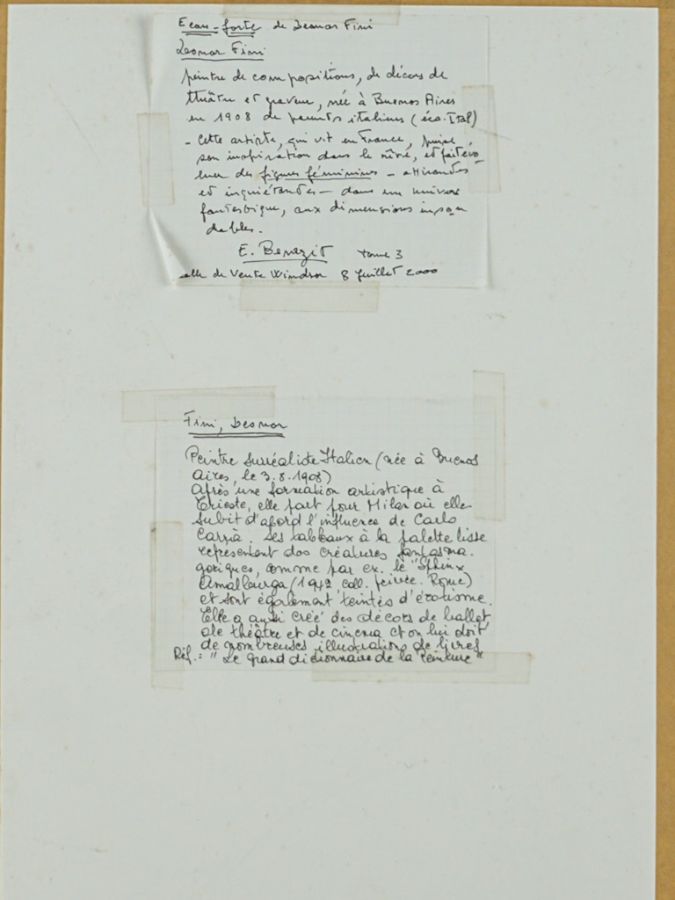 Eau-forte de Leonor Fini
Leonor Fini
peintre de compositions, de décors de
théâtre et graveur, née à Buenos Aires
en 1908 de parents italiens (éco. Ital)
- Cette artiste, qui vit en France, puise
son inspiration dans le rêve, et fait évo-
luer des figures féminines - attirantes
et inquiétantes - dans un univers
fantastique, aux dimensions inson
dables.
E. Benezit tome 3
salle de vente Windsor 8 juillet 2000
Fini, Leonor
Peintre Surréaliste Italien (née à Buenos
Aires, le 3.8.1908)
Après une formation artistique à
Trieste, elle part pour Milan où elle
subit d'abord l'influence de Carlo
Carrà. Ses tableaux à la palette lisse
représentent des créatures fantasma.
goriques, comme par ex. le "Sphinx
Amalburga (1942 coll. privée. Rome)
et sont également teintés d'érotisme.
Elle a aussi créé des décors de ballet
de théâtre et de cinema et on lui doit
de nombreuses illustrations de livres
Réf.: "Le grand dictionnaire de la Peinture"